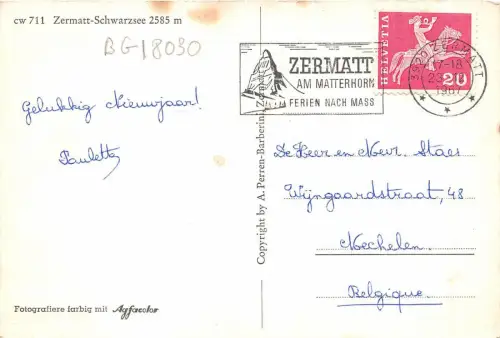 cw 711 Zermatt-Schwarzsee 2585 m
BG18030
ZERMATT
AM MATTERHORN
FERIEN NACH MASS
HELVETIA
20
3920 ZERMATT
17-18
1967
Gelukkig Nieuwjaar!
Paulette
De Heer en Mevr. Staes
Wijngaardstraat, 48
Mechelen.
Belgique.
Copyright by A. Perren-Barberini, Zermatt
Fotografiere farbig mit Agfacolor